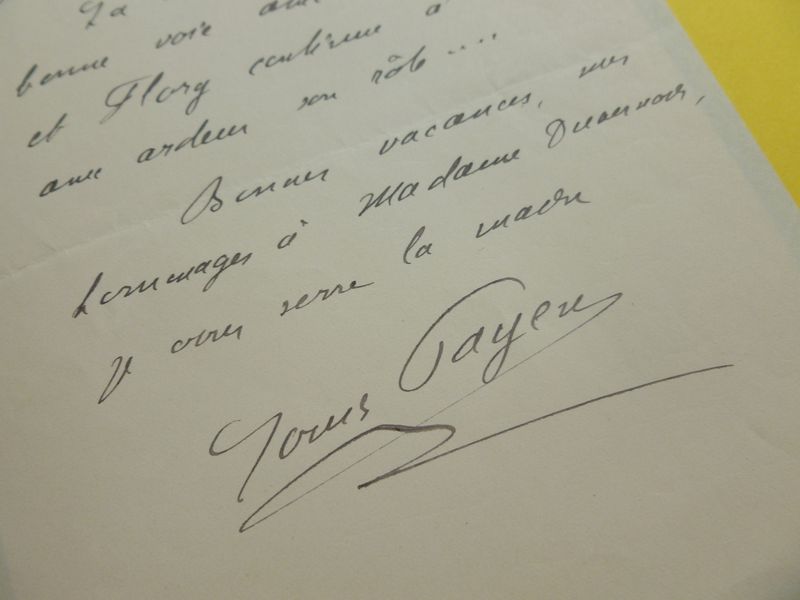 La
bonne voie avec
et Florg continue à
avec ardeur son rôle....
Bonnes vacances, mes
hommages à Madame Duvernois,
je vous serre la main
Louis Payen